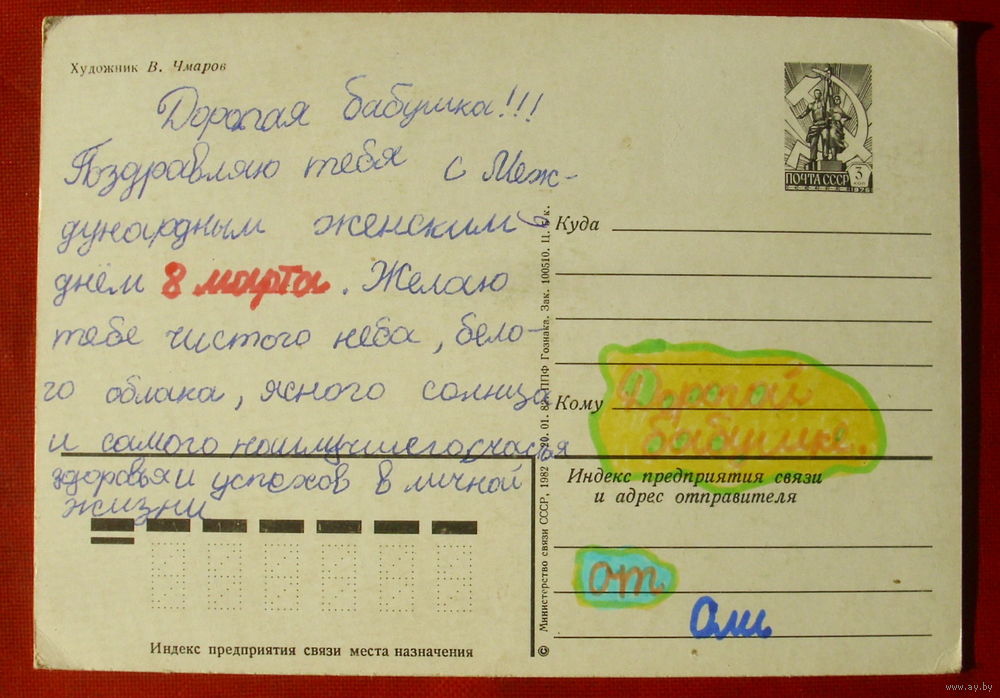 Художник В. Чмаров
Дорогая бабушка!!!
Поздравляю тебя с Меж-
дународным женским
днём 8 марта. Желаю
тебе чистого неба, бело-
го облака, ясного солнца
и самого наилучшего счастья
здоровья и успехов в личной
жизни
ПОЧТА СССР 3 КОП
1976
Куда
Кому Дорогой
бабушке.
Индекс предприятия связи
и адрес отправителя
от
Оли
Индекс предприятия связи места назначения
© Министерство связи СССР, 1982 20. 01. 82. ППФ Гознака. Зак. 100510. Ц. к.
www.ay.by